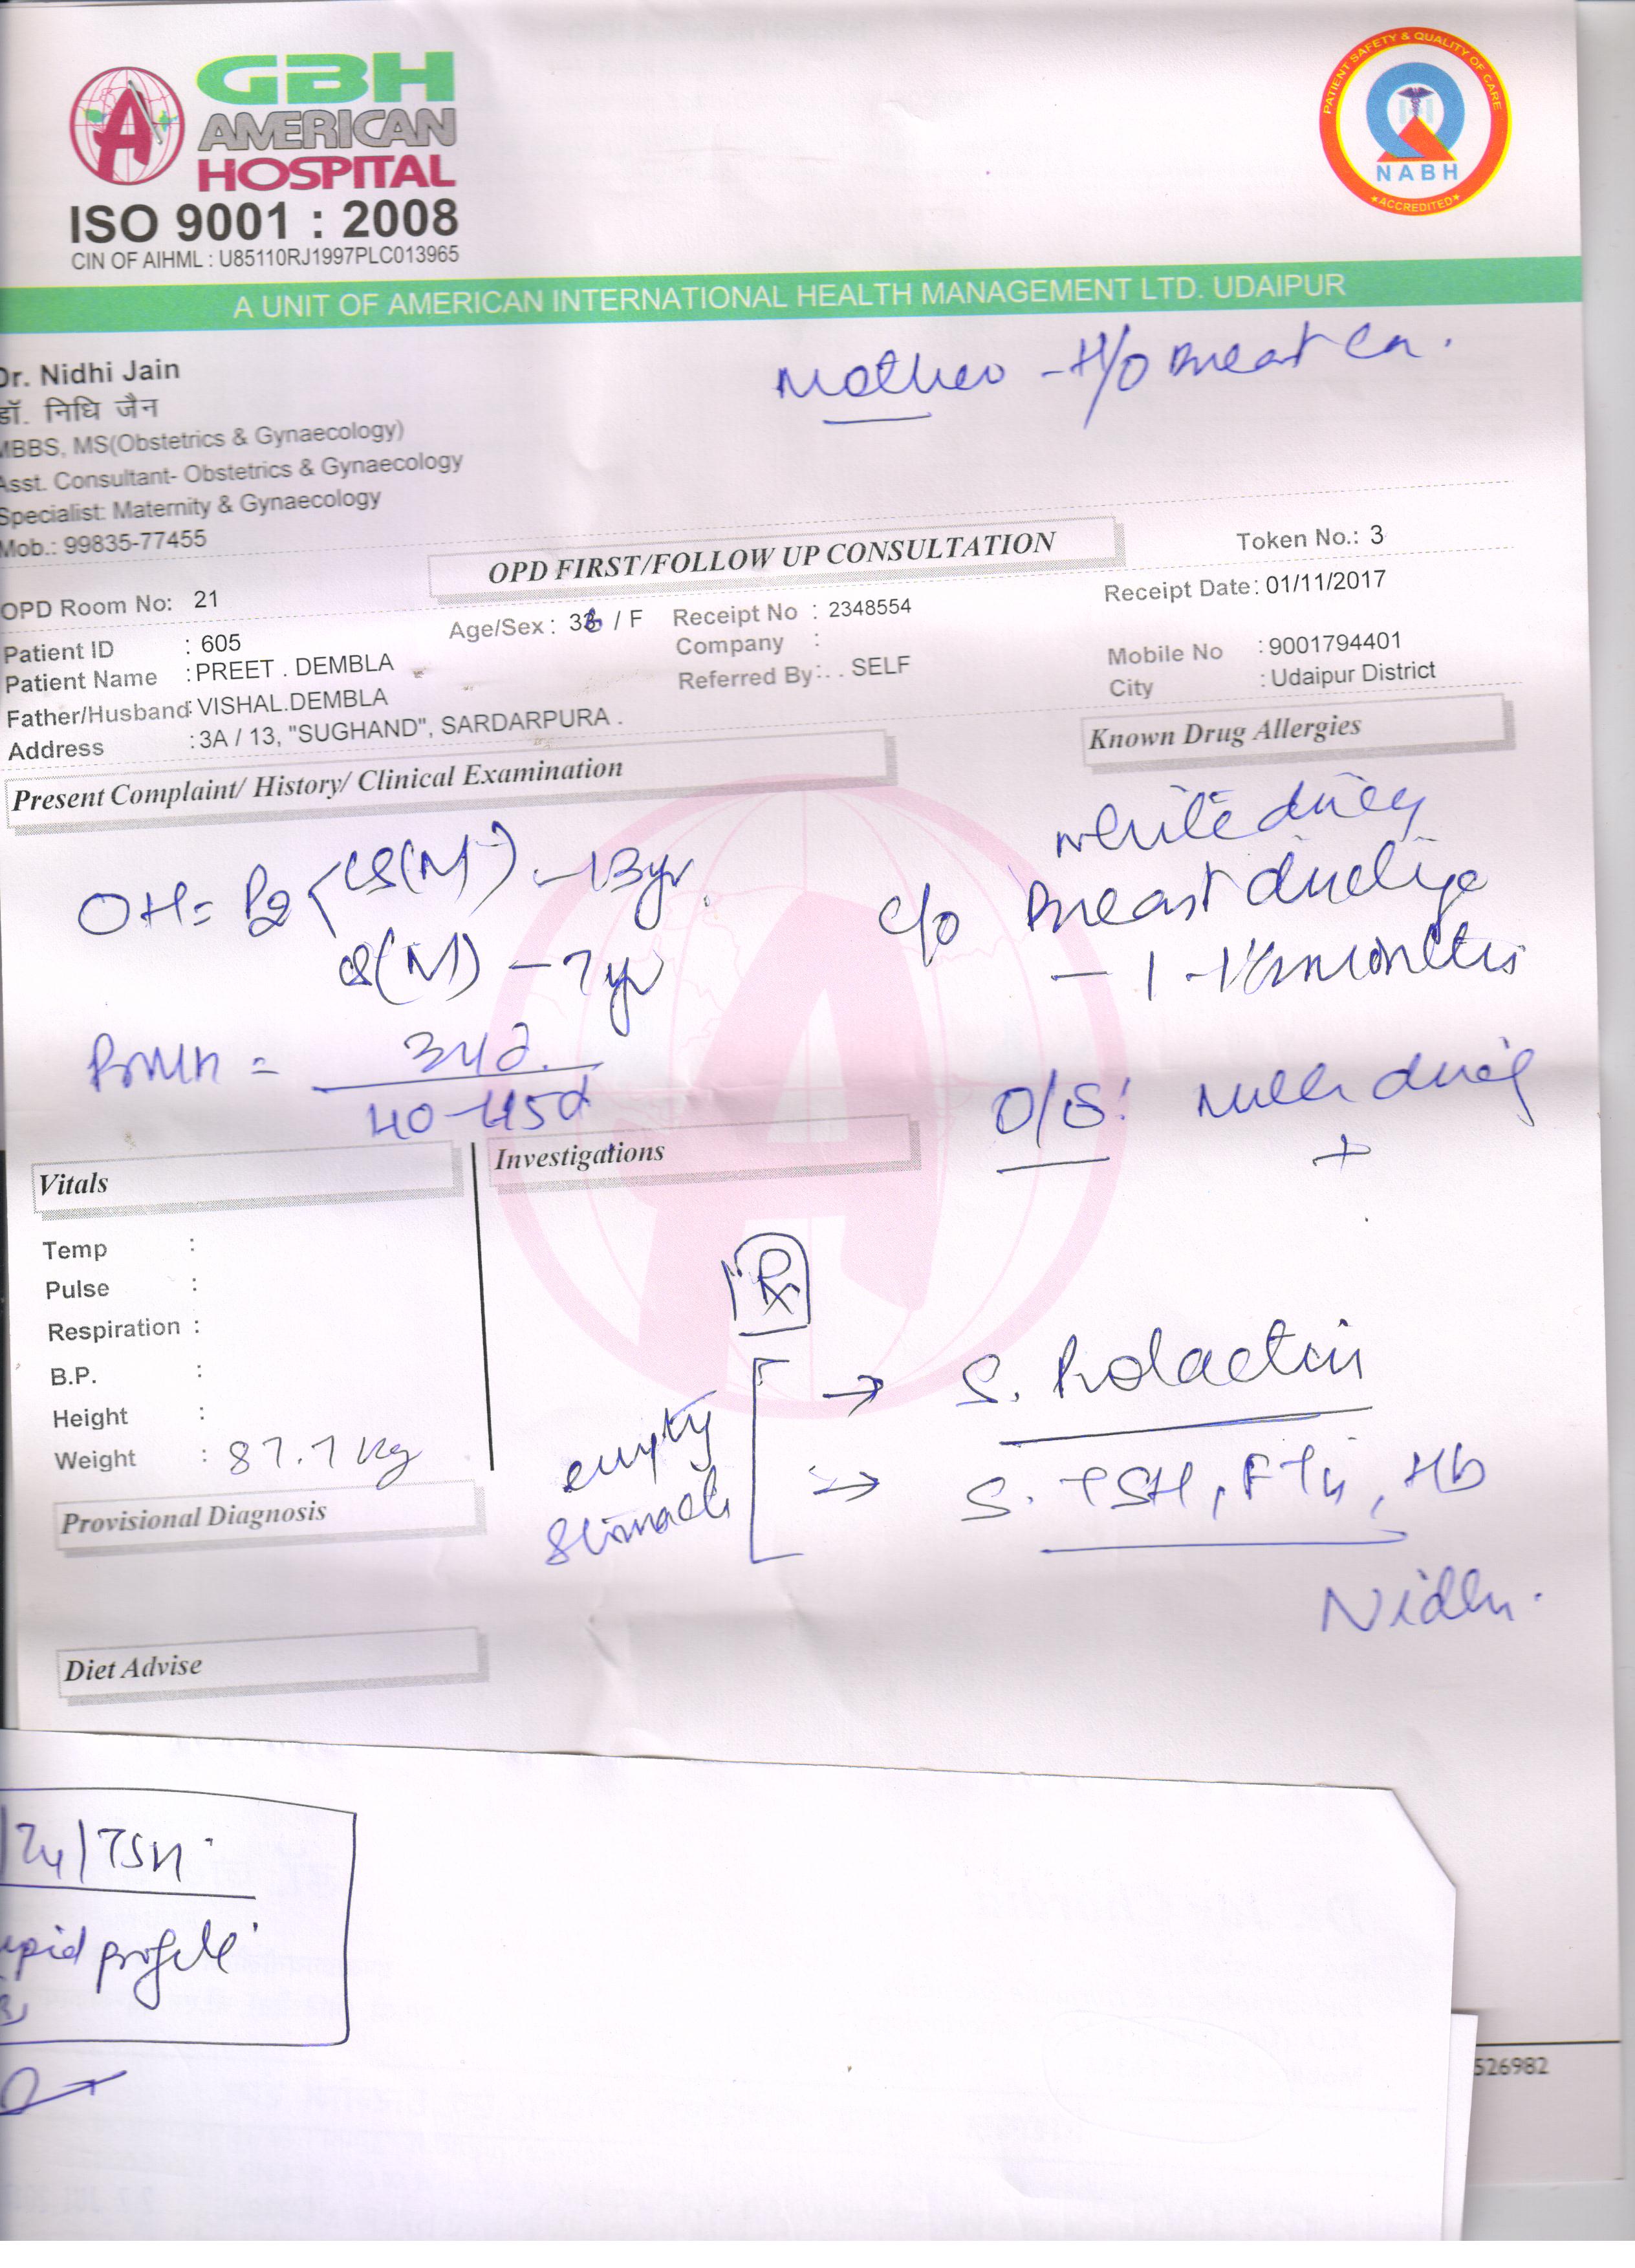 GBH
AMERICAN
HOSPITAL
ISO 9001 : 2008
CIN OF AIHML : U85110RJ1997PLC013965
PATIENT SAFETY & QUALITY OF CARE
NABH
ACCREDITED
A UNIT OF AMERICAN INTERNATIONAL HEALTH MANAGEMENT LTD. UDAIPUR
Mother - H/O Breast Ca.
Dr. Nidhi Jain
डॉ. निधि जैन
MBBS, MS(Obstetrics & Gynaecology)
Asst. Consultant- Obstetrics & Gynaecology
Specialist: Maternity & Gynaecology
Mob.: 99835-77455
OPD FIRST/FOLLOW UP CONSULTATION
Token No.: 3
OPD Room No: 21
Receipt Date: 01/11/2017
Patient ID : 605
Age/Sex : / F
Receipt No : 2348554
Company :
Mobile No : 9001794401
Patient Name : PREET . DEMBLA
Referred By: . . SELF
City : Udaipur District
Father/Husband: VISHAL.DEMBLA
Address : 3A / 13, "SUGHAND", SARDARPURA .
Known Drug Allergies
Present Complaint/ History/ Clinical Examination
OH= P2 (M) - 13yr.
(M) - 7yr
white
c/o Breast
- 1 - months
= 34d.
40-45d
O/S:
+
Vitals
Investigations
Temp :
Pulse :
Respiration :
B.P. :
Height :
Weight : 87.7 kg
Rx
empty
stomach
→ S. Prolactin
→ S. TSH, FT4, Hb
Nidhi.
Provisional Diagnosis
Diet Advise
/T4/TSH
profile
526982